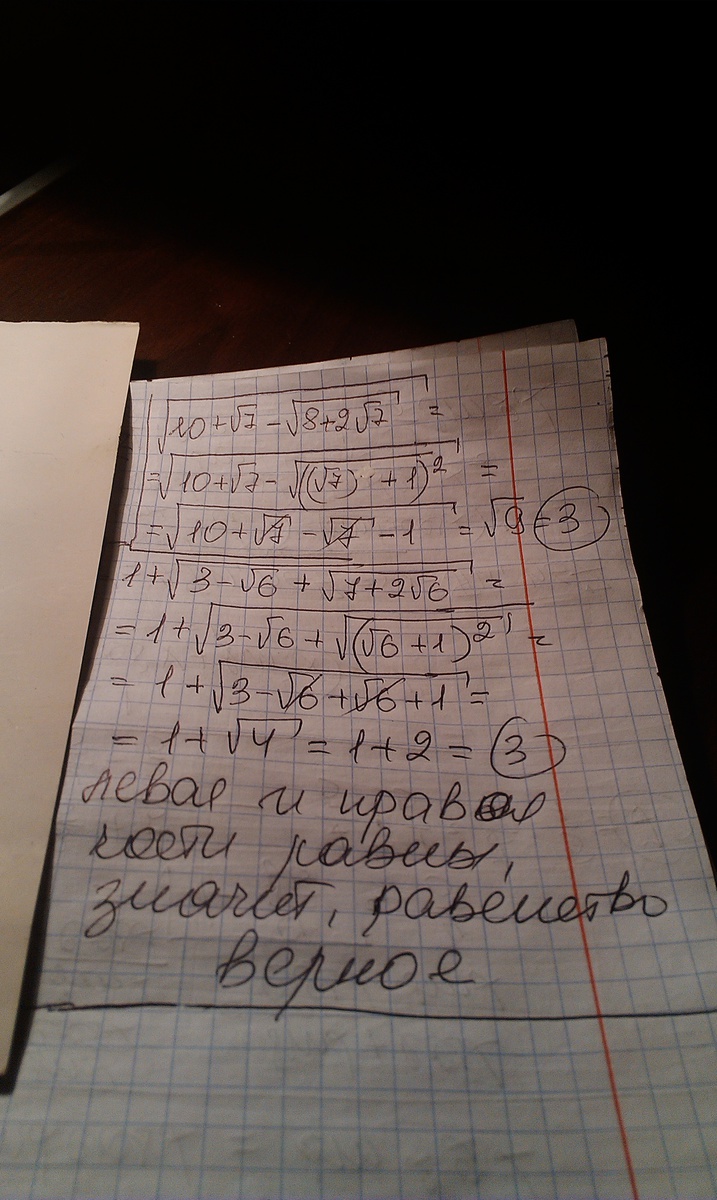 √(10+√7 -√(8+2√7)) =
=√(10+√7-√((√7) +1)²) =
=√(10+√7-√7-1) = √9 = 3
1+√(3-√6+√(7+2√6)) =
= 1+√(3-√6+√((√6+1)²)) =
= 1+√(3-√6+√6+1) =
= 1+√4 = 1+2 = 3
левая и правая
части равны,
значит, равенство
верное